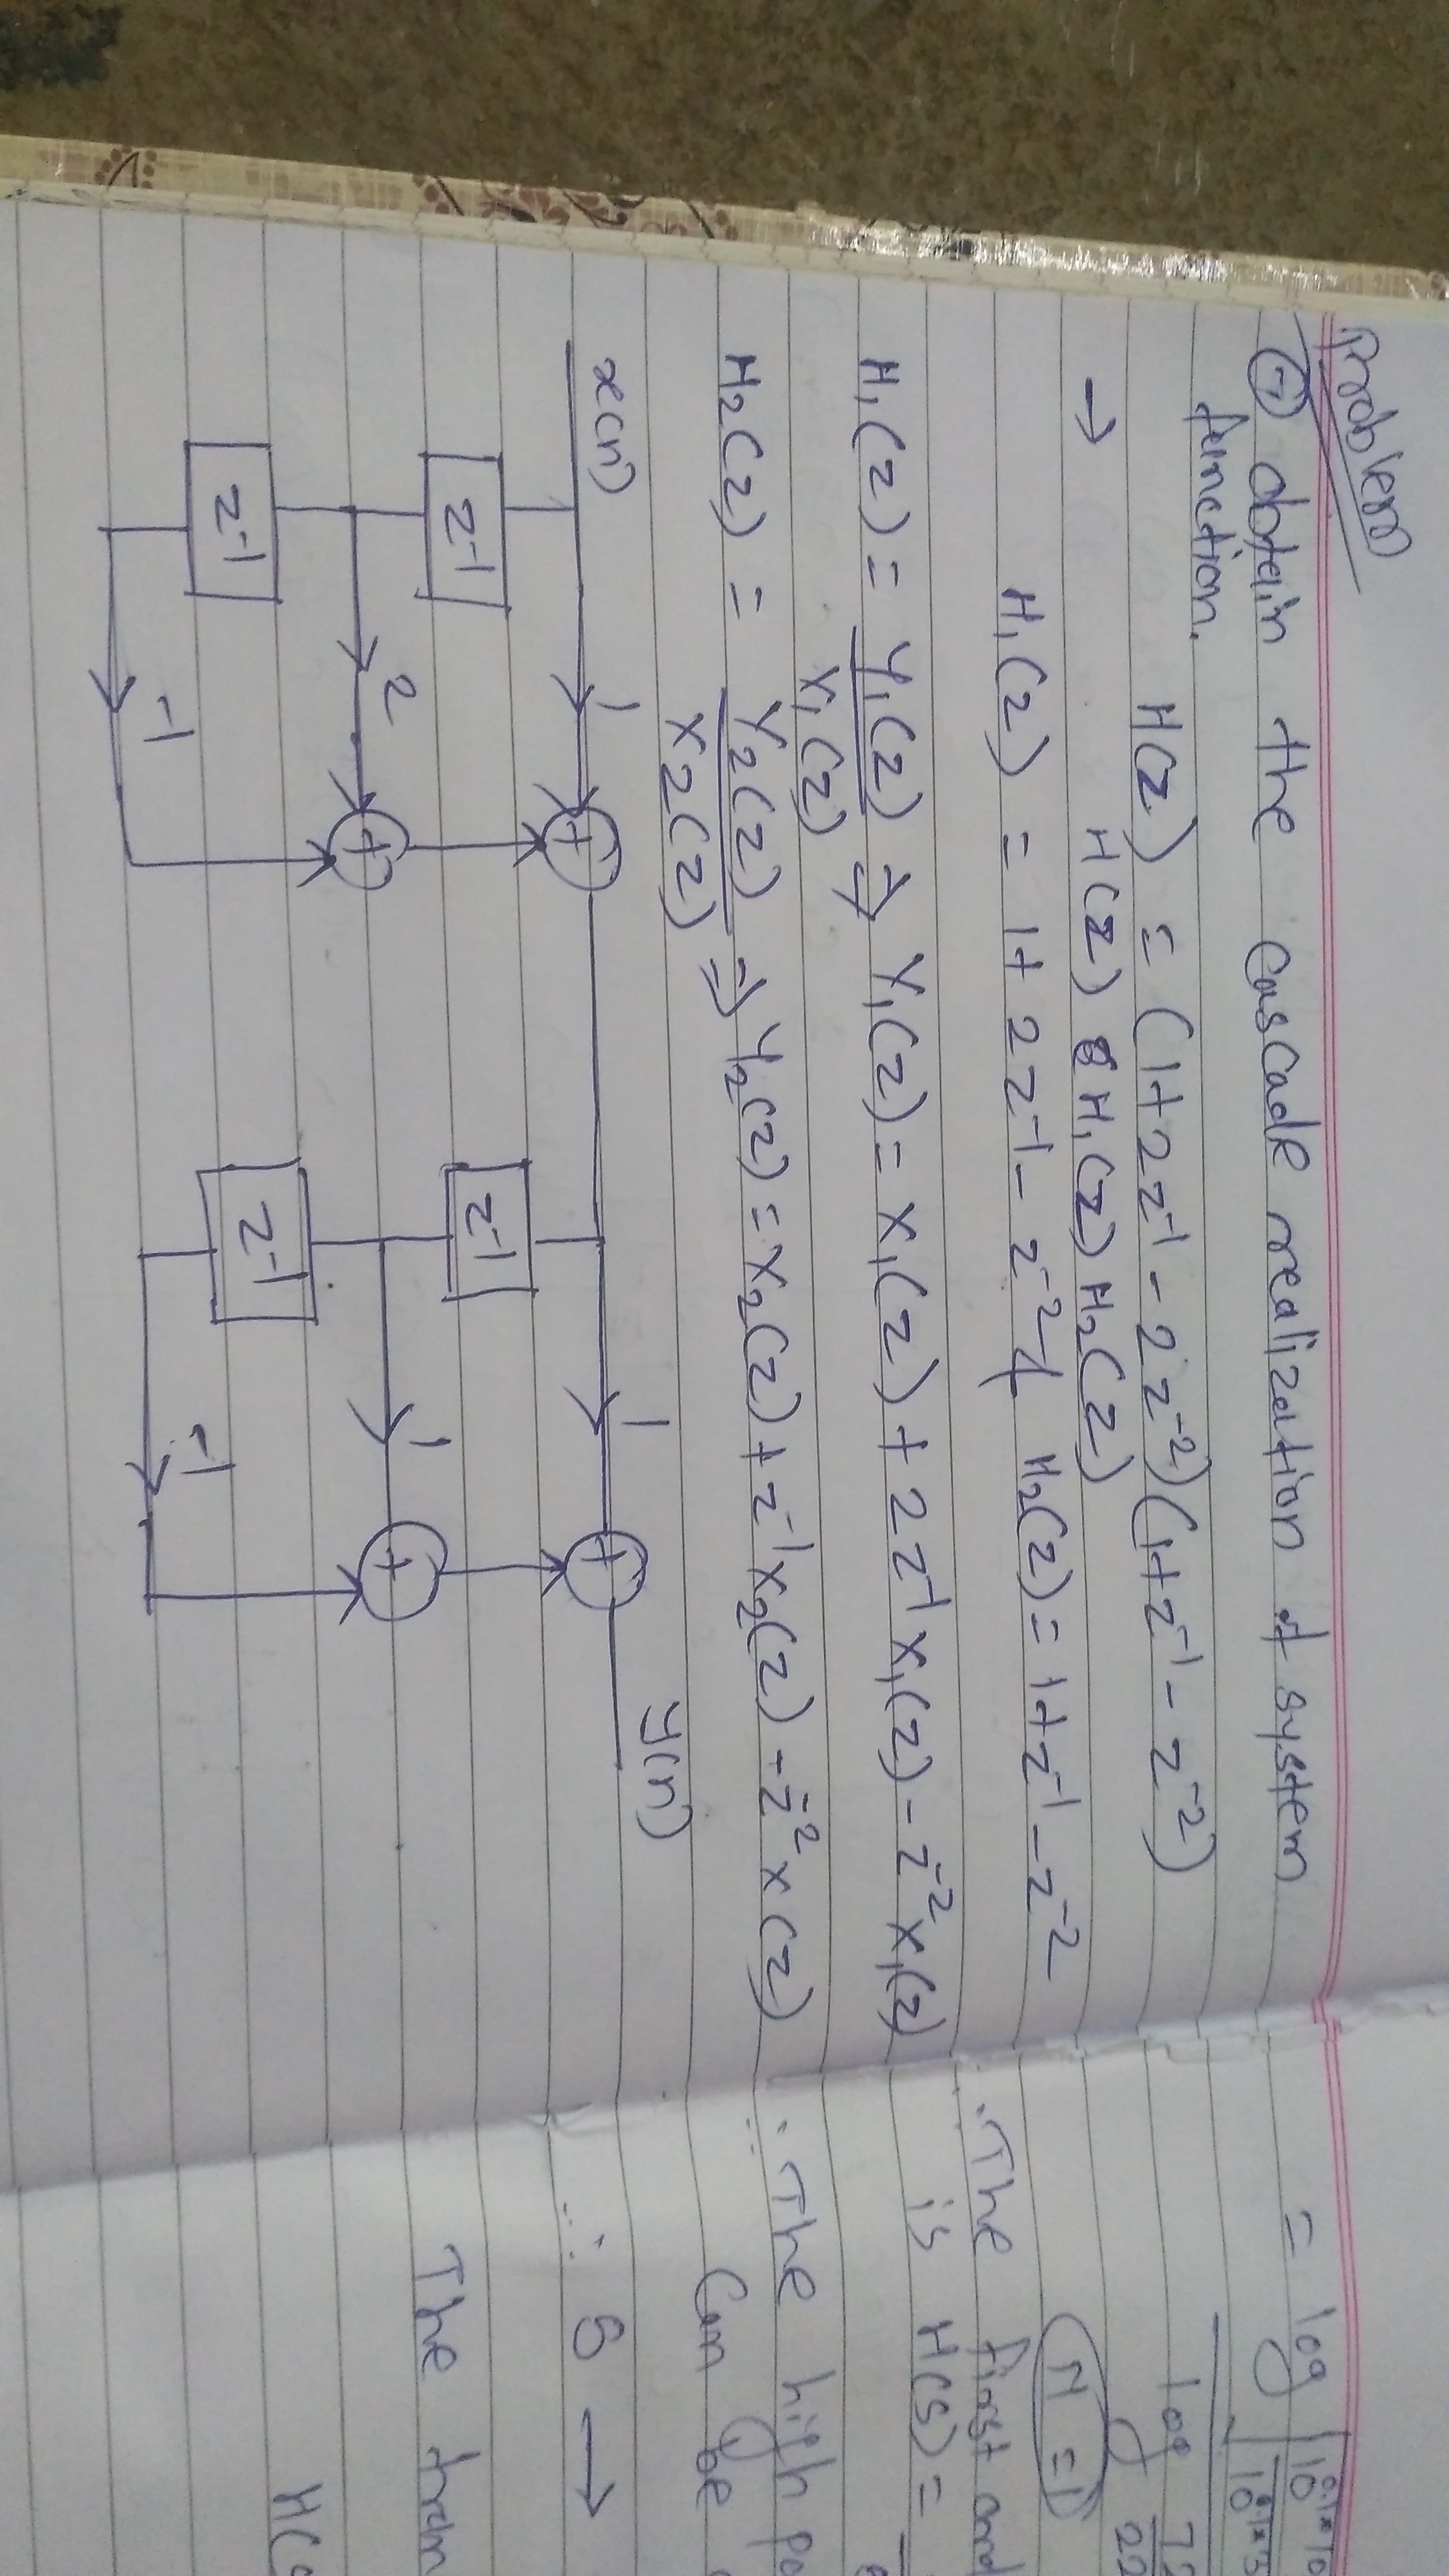 Problem
① obtain the cascade realization of system
function.
H(z) = (1+2z⁻¹ - 2z⁻²)(1+z⁻¹ - z⁻²)
→ H(z) = H₁(z) H₂(z)
H₁(z) = 1+2z⁻¹ - z⁻² & H₂(z) = 1+z⁻¹ - z⁻²
H₁(z) = Y₁(z)/X₁(z) ⇒ Y₁(z) = X₁(z) + 2z⁻¹X₁(z) - z⁻²X₁(z)
H₂(z) = Y₂(z)/X₂(z) ⇒ Y₂(z) = X₂(z) + z⁻¹X₂(z) - z⁻²X(z)
x(n) 1 + 1 + y(n)
z⁻¹ z⁻¹
2 + 1 +
z⁻¹ z⁻¹
-1 -1
= log
log
N = 1
∴ The first ord
is H(s) =
∴ The high pa
Can be
∴ S →
The tran